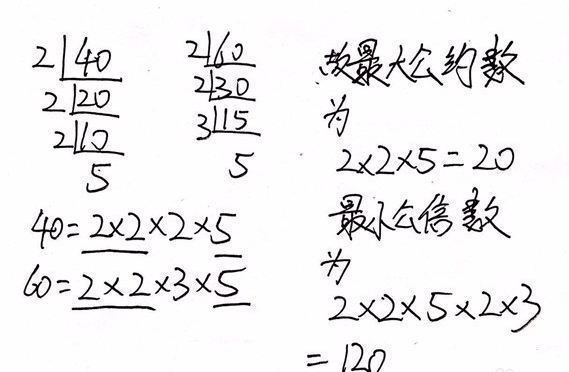 2 40
2 20
2 10
5
2 60
2 30
3 15
5
40=2×2×2×5
60=2×2×3×5
故最大公约数
为
2×2×5=20
最小公倍数
为
2×2×5×2×3
=120